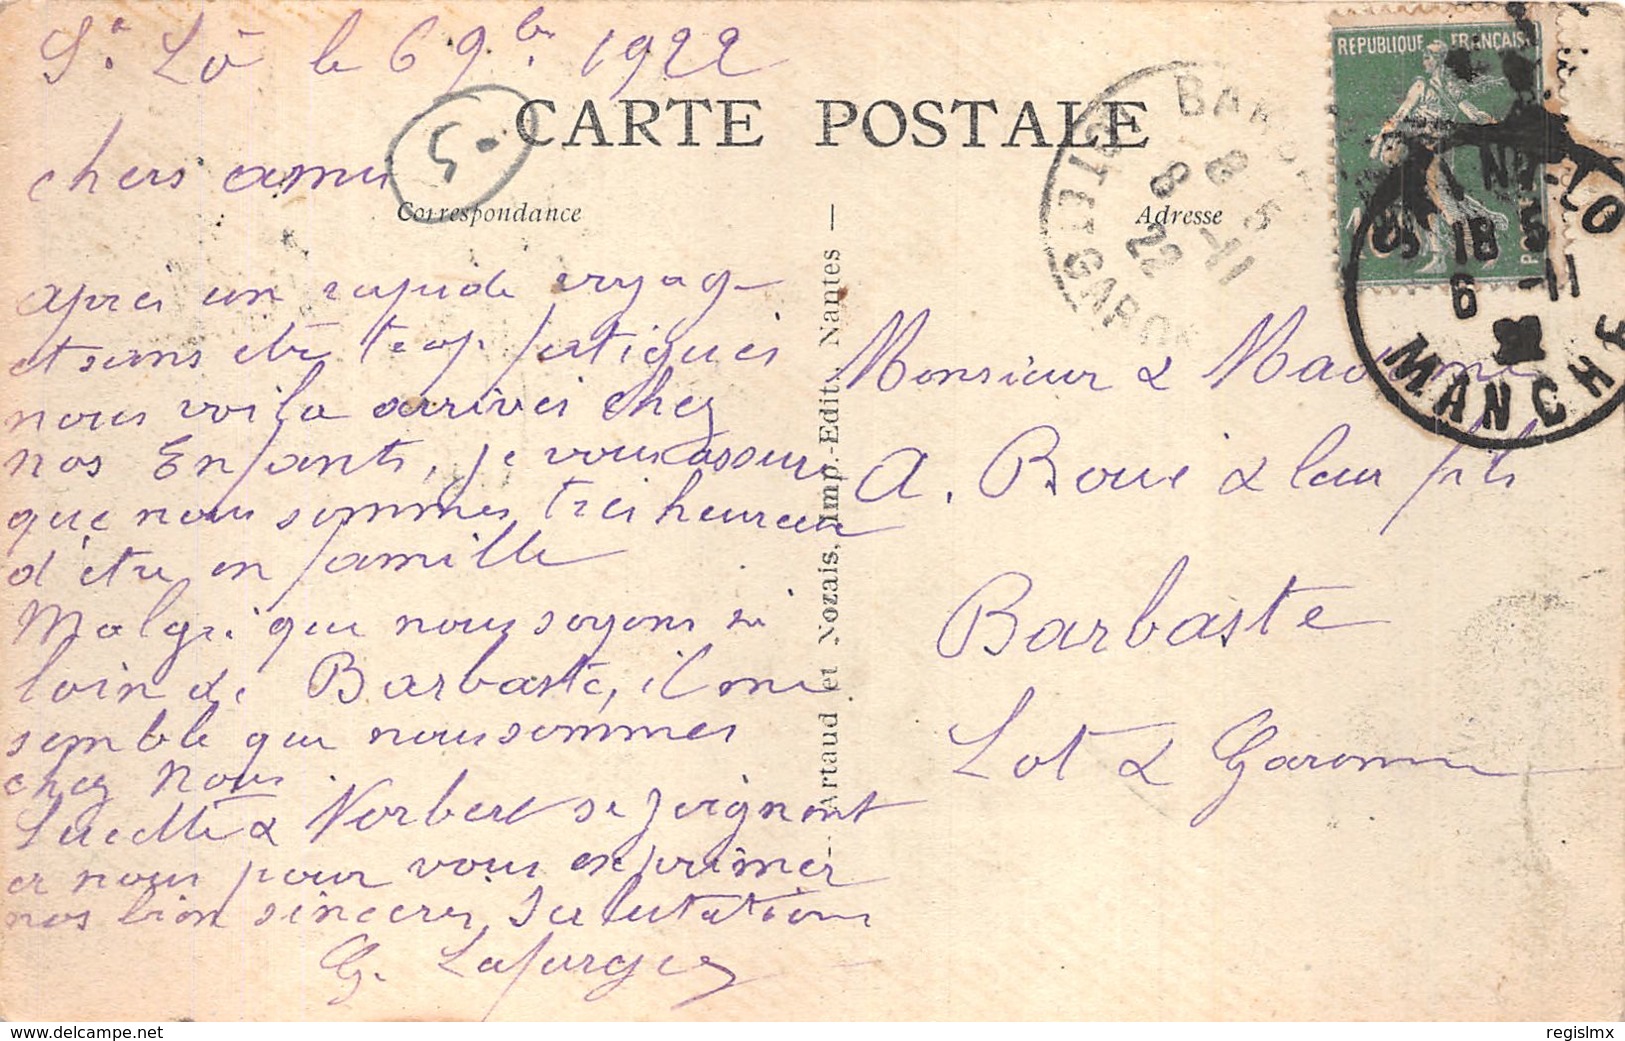 St Lô le 6 9bre 1922
CARTE POSTALE
5.-
chers amis
Correspondance
Adresse
après un rapide voyage
et sans être trop fatigués
nous voila arrivés chez
nos Enfants, je vous assure
que nous sommes très heureux
d'être en famille
Malgré que nous soyons si
loin de Barbaste, il me
semble que nous sommes
chez Nous.
Lucette & Norbert se joignent
a nous pour vous exprimer
nos bien sincères Salutations
G. Lafargue
Artaud et Nozais, Imp.-Edit., Nantes
Monsieur & Madame
A. Boué & leur fils
Barbaste
Lot & Garonne
REPUBLIQUE FRANÇAISE
ST-LO
18
6 -11
22
MANCHE
8 -11
22
LOT-ET-GARONNE
regislmx